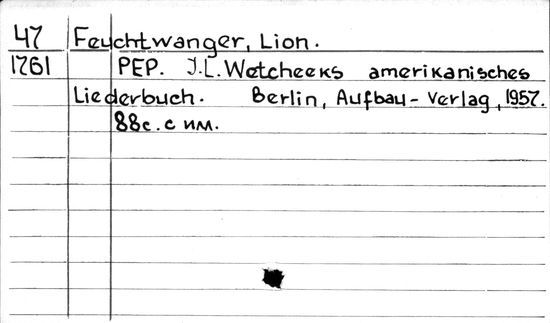 47 Feuchtwanger, Lion.
1761 PEP. J.L.Wetcheeks amerikanisches
Liederbuch. Berlin, Aufbau-Verlag, 1957.
88с. с ил.